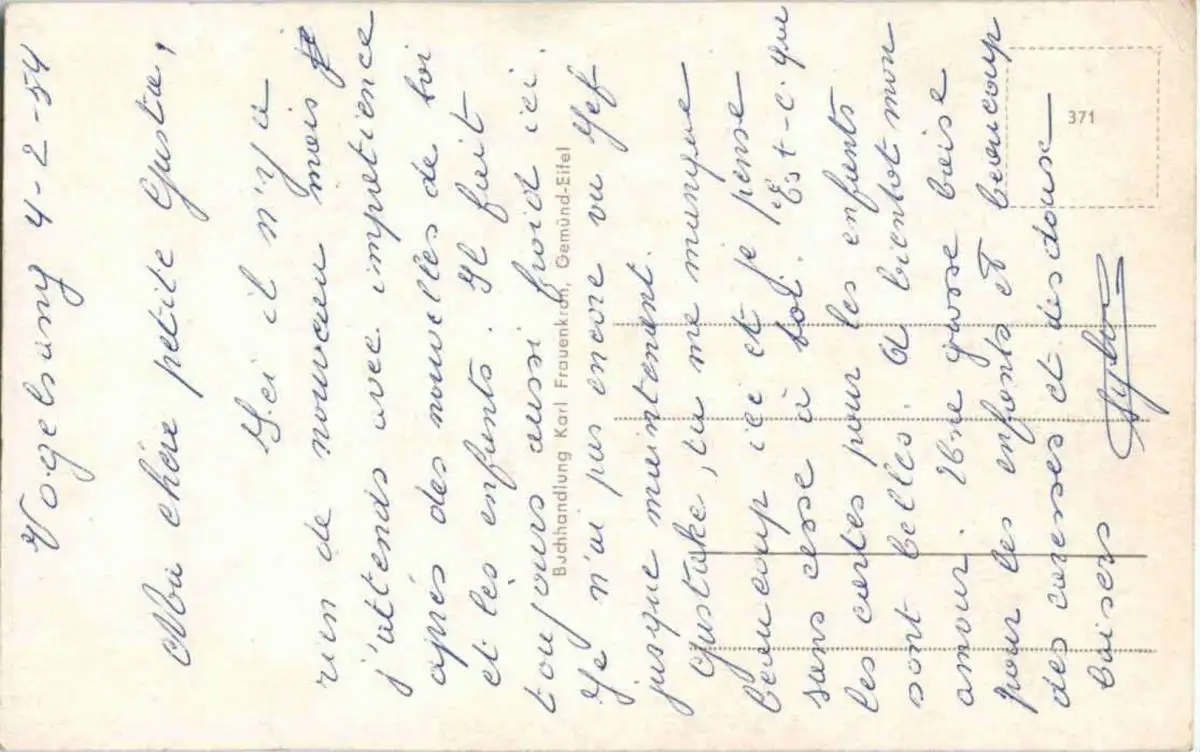 Vogelsang 4-2-54
Ma chère petite Gusta,
Ici il n'y a
rien de nouveau mais je
j'attends avec impatience
après des nouvelles de toi
et lès enfants. Il fait
toujours aussi froid ici.
Je n'ai pas encore vu Jef
jusque maintenant.
Gustake, tu me manque
beaucoup ici et je pense
sans cesse à toi. Est-c-que
les cartes pour les enfants
sont belles. A bientot mon
amour. Une grosse baise
pour les enfants et beaucoup
des caresses et des doux
baisers
Buchhandlung Karl Frauenkron, Gemünd-Eifel
371